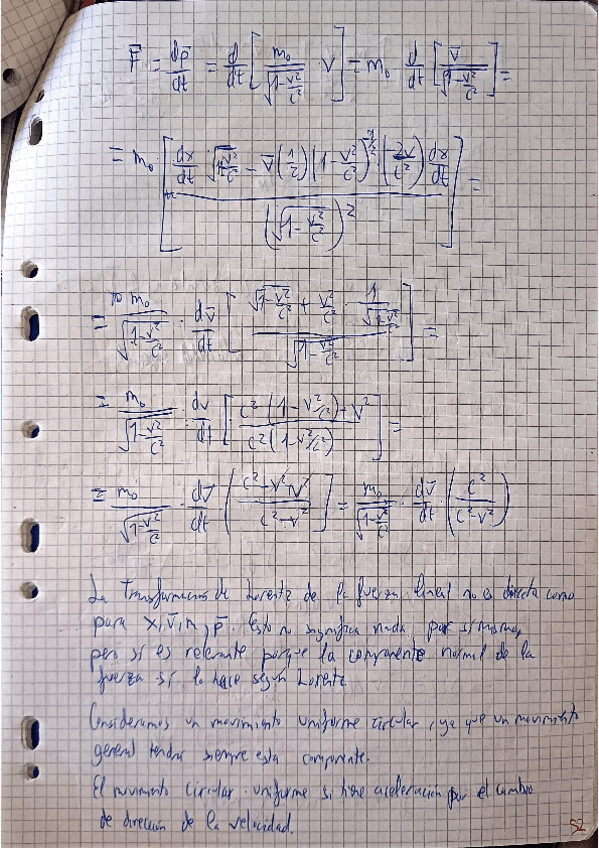 F̄ = dp̄/dt = d/dt [ m₀/√(1-v²/c²) v ] = m₀ d/dt [ v̄/√(1-v²/c²) ] =
= m₀ · [ ( dx/dt · √(1-v²/c²) - v̄ (1/2) (1-v²/c²)^(-1/2) · (-2v/c²) dx/dt ) / (√(1-v²/c²))² ] =
= m₀/√(1-v²/c²) · dv̄/dt [ ( √(1-v²/c²) + v²/c² · 1/√(1-v²/c²) ) / √(1-v²/c²) ] =
= m₀/√(1-v²/c²) · dv/dt [ ( c² (1-v²/c²) + v² ) / ( c² (1-v²/c²) ) ] =
= m₀/√(1-v²/c²) · dv̄/dt · ( (c²-v²+v²) / (c²-v²) ] = m₀/√(1-v²/c²) · dv̄/dt · ( c²/(c²-v²) )
La transformación de Lorentz de la fuerza lineal no es directa como
para x, v̄, m, p̄. Esto no significa nada por sí mismo,
pero sí es relevante porque la componente normal de la
fuerza sí lo hace según Lorentz
Consideramos un movimiento uniforme circular, ya que un movimiento
general tendrá siempre esta componente.
El movimiento circular uniforme si tiene aceleración por el cambio
de dirección de la velocidad.
52